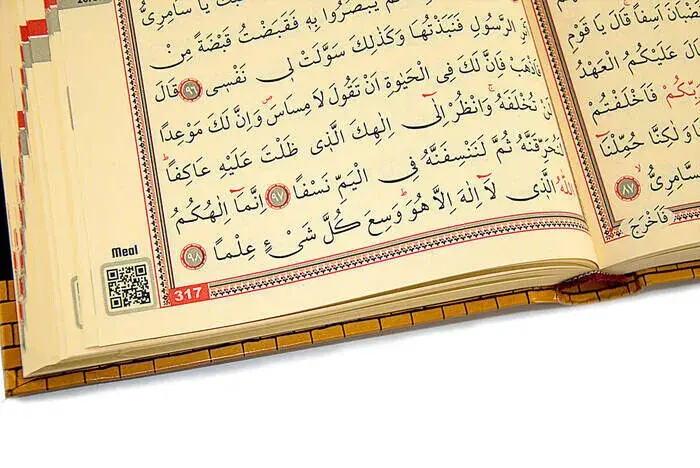 اَسِفًا قَالَ يَا قَوْمِ
عَلَيْكُمُ الْعَهْدُ
رَبِّكُمْ فَاَخْلَفْتُمْ
وَلٰكِنَّا حُمِّلْنَٓا
السَّامِرِىُّ ﴿٨٧﴾
فَاَخْرَجَ
يَا سَامِرِىُّ
يَبْصُرُوا بِه۪ فَقَبَضْتُ قَبْضَةً مِنْ
الرَّسُولِ فَنَبَذْتُهَا وَكَذٰلِكَ سَوَّلَتْ ل۪ى نَفْس۪ى ﴿٩٦﴾ قَالَ
فَاذْهَبْ فَاِنَّ لَكَ فِى الْحَيٰوةِ اَنْ تَقُولَ لَا مِسَاسَ وَاِنَّ لَكَ مَوْعِدًا
لَنْ تُخْلَفَهُ وَانْظُرْ اِلٰٓى اِلٰهِكَ الَّذ۪ى ظَلْتَ عَلَيْهِ عَاكِفًا
لَنُحَرِّقَنَّهُ ثُمَّ لَنَنْسِفَنَّهُ فِى الْيَمِّ نَسْفًا ﴿٩٧﴾ اِنَّمَٓا اِلٰهُكُمُ
اللّٰهُ الَّذ۪ى لَٓا اِلٰهَ اِلَّا هُوَ وَسِعَ كُلَّ شَىْءٍ عِلْمًا ﴿٩٨﴾
Meal
317